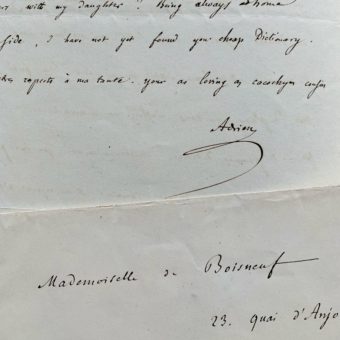 with my daughter? Being always at home
side, I have not yet found you cheap Dictionary.
respects à ma tante. your as loving as cacochym
Adrien
Mademoiselle de Boisneuf
23. quai d'Anjo